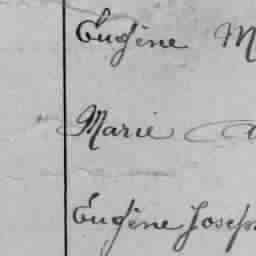 Eugène M
Marie
Eugène Joseph